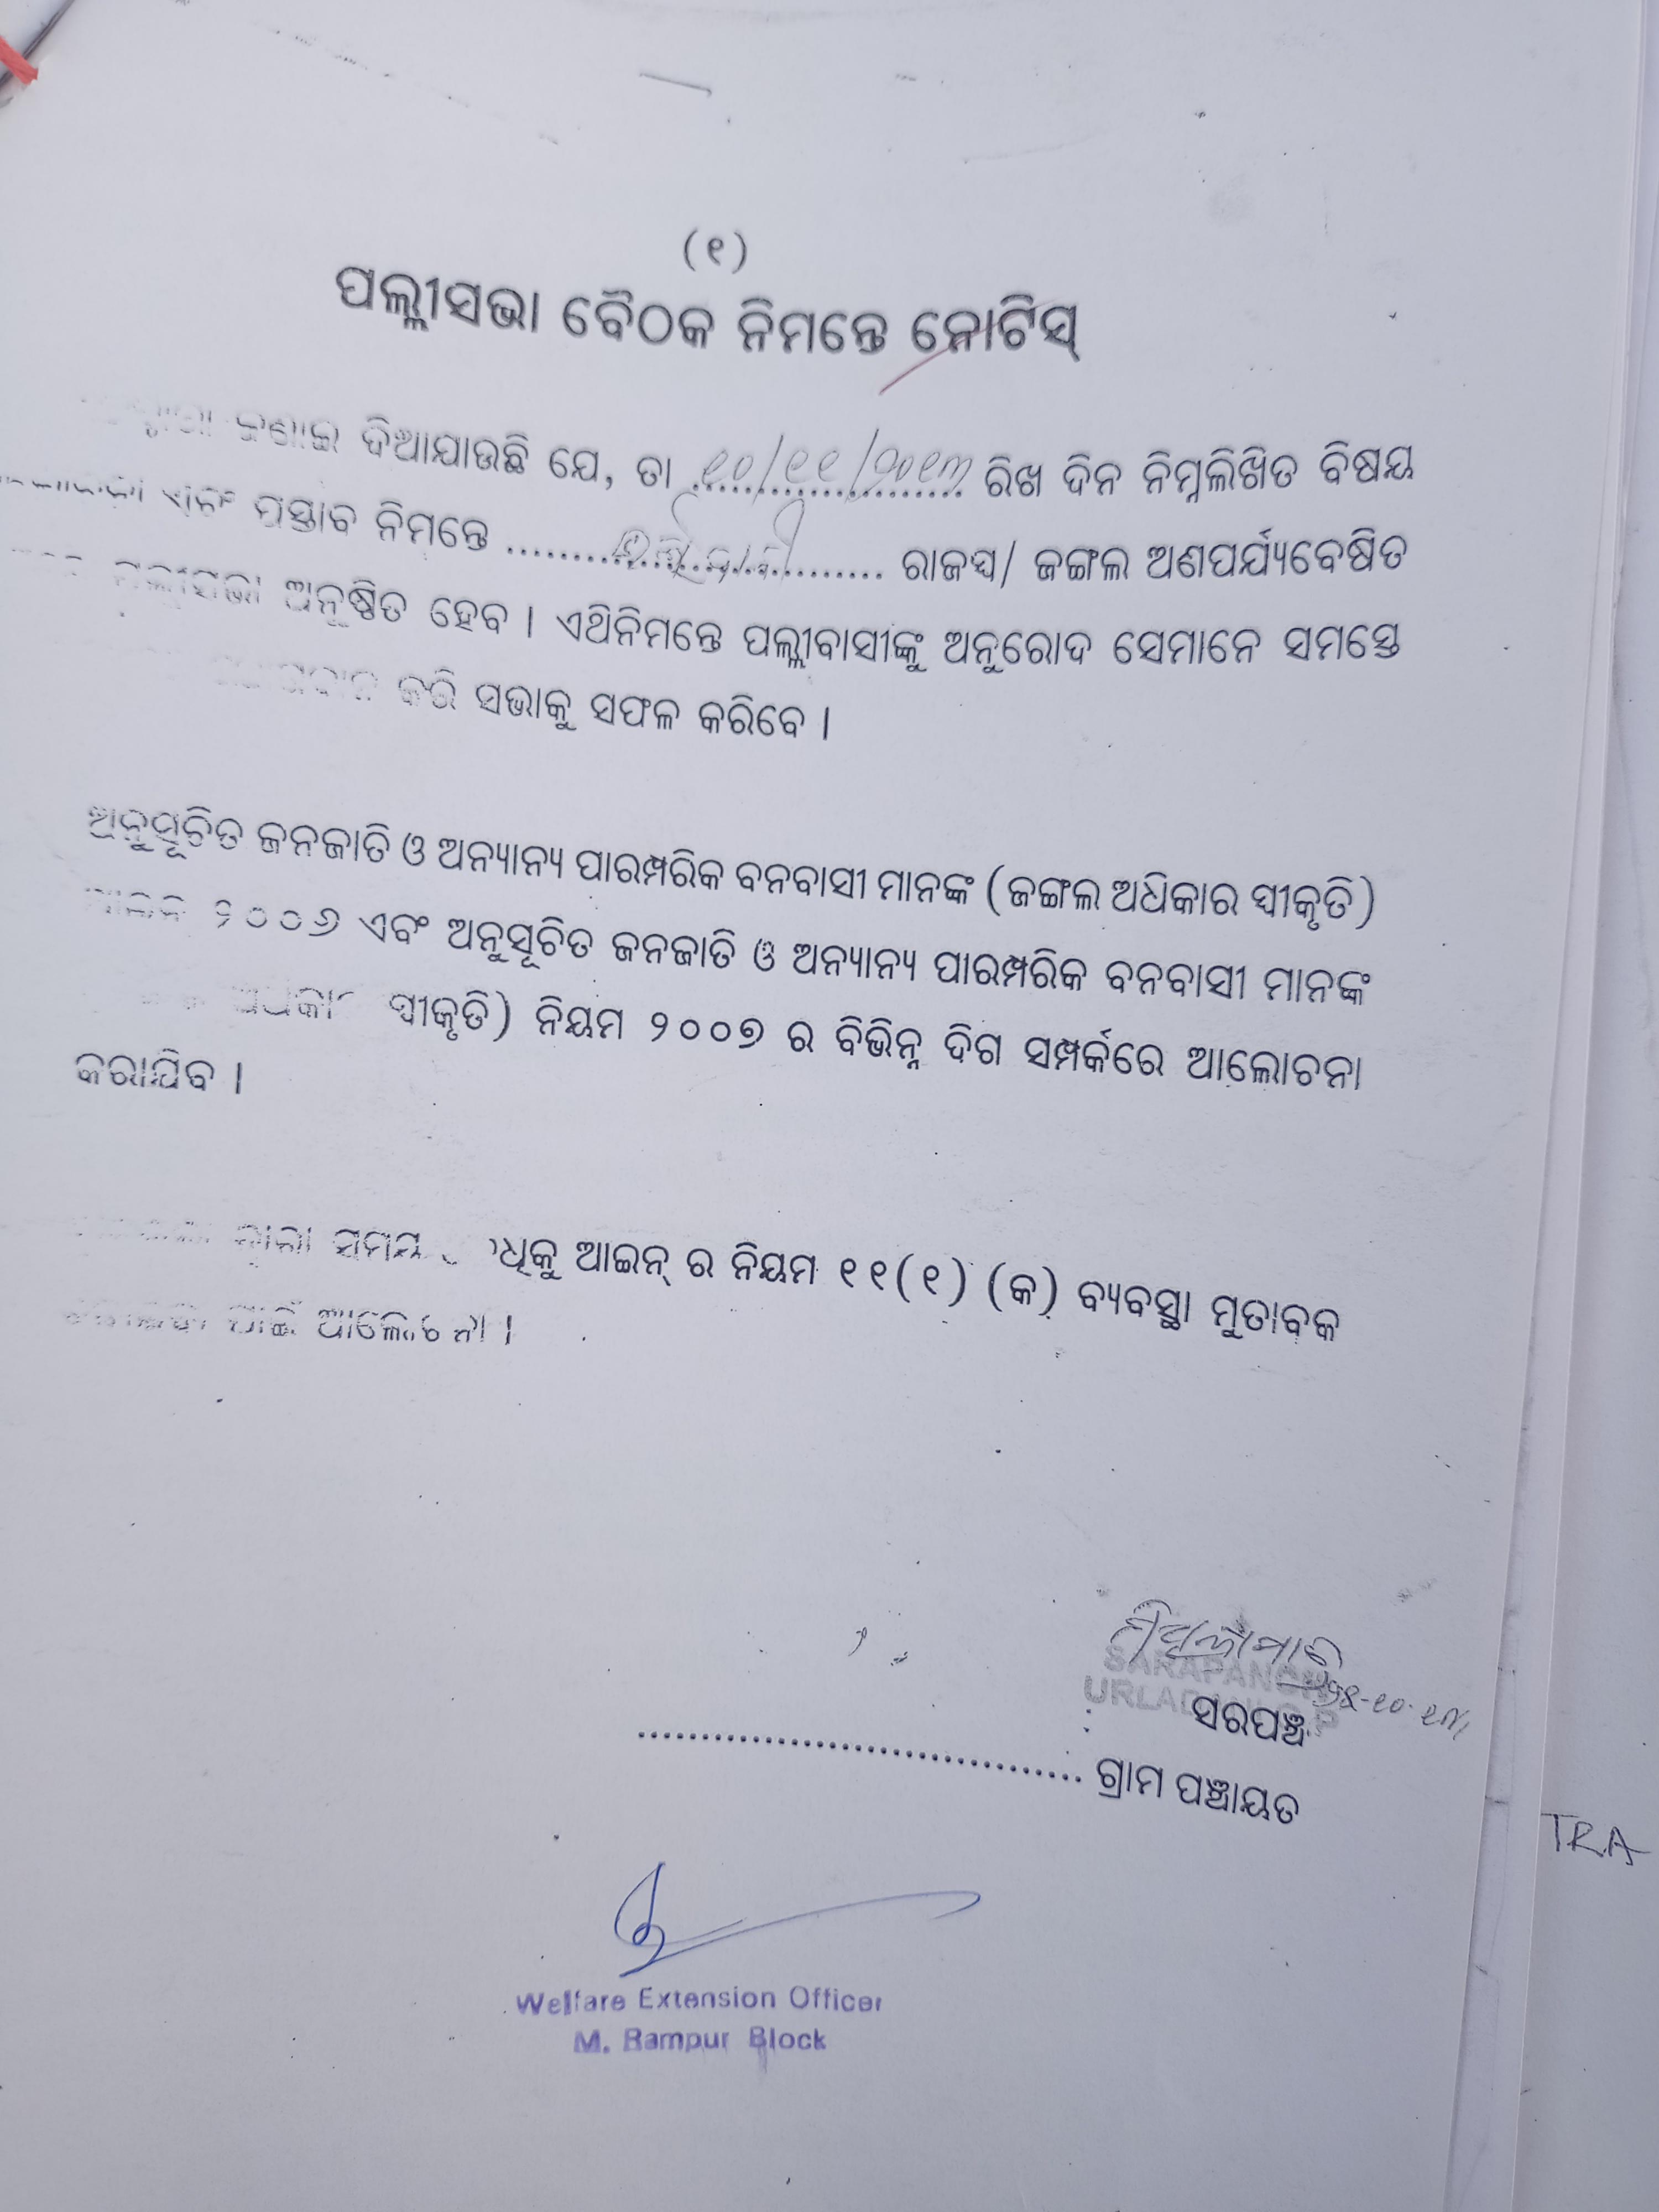 (୧)
ପଲ୍ଲୀସଭା ବୈଠକ ନିମନ୍ତେ ନୋଟିସ୍
ଜଣାଇ ଦିଆଯାଉଛି ଯେ, ତା ୧୦/୧୧/୨୦୧୩ ରିଖ ଦିନ ନିମ୍ନଲିଖିତ ବିଷୟ
ଏବଂ ପ୍ରସ୍ତାବ ନିମନ୍ତେ .............................. ରାଜସ୍ୱ/ ଜଙ୍ଗଲ ଅଣପର୍ଯ୍ୟବେଷିତ
ପଲ୍ଲୀସଭା ଅନୁଷ୍ଠିତ ହେବ । ଏଥିନିମନ୍ତେ ପଲ୍ଲୀବାସୀଙ୍କୁ ଅନୁରୋଦ ସେମାନେ ସମସ୍ତେ
କରି ସଭାକୁ ସଫଳ କରିବେ ।
ଅନୁସୂଚିତ ଜନଜାତି ଓ ଅନ୍ୟାନ୍ୟ ପାରମ୍ପରିକ ବନବାସୀ ମାନଙ୍କ (ଜଙ୍ଗଲ ଅଧିକାର ସ୍ୱୀକୃତି)
୨୦୦୬ ଏବଂ ଅନୁସୂଚିତ ଜନଜାତି ଓ ଅନ୍ୟାନ୍ୟ ପାରମ୍ପରିକ ବନବାସୀ ମାନଙ୍କ
ସ୍ୱୀକୃତି) ନିୟମ ୨୦୦୭ ର ବିଭିନ୍ନ ଦିଗ ସମ୍ପର୍କରେ ଆଲୋଚନା
କରାଯିବ ।
ସମୟ ଆଇନ୍ ର ନିୟମ ୧୧(୧) (କ) ବ୍ୟବସ୍ଥା ମୁତାବକ
ପାଇଁ ଆଲୋଚନା ।
SARAPANCH
ସରପଞ୍ଚ
.................................. ଗ୍ରାମ ପଞ୍ଚାୟତ
TRA
Welfare Extension Officer
M. Rampur Block